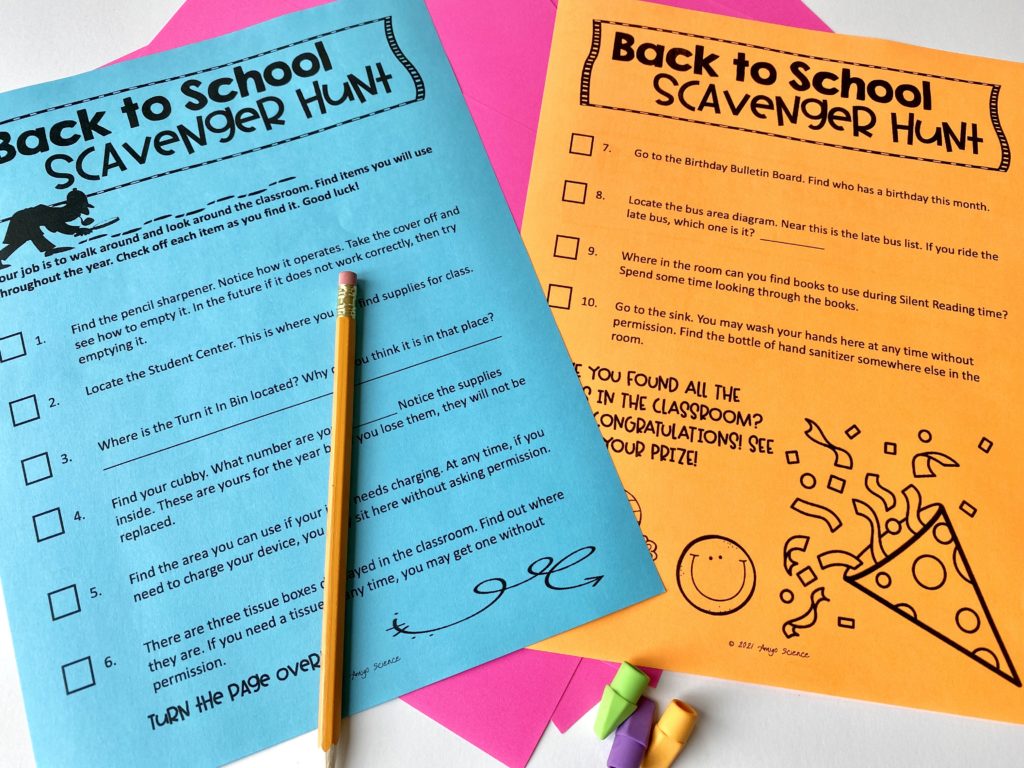 Back to School
SCAVENGER HUNT
our job is to walk around and look around the classroom. Find items you will use
throughout the year. Check off each item as you find it. Good luck!
1. Find the pencil sharpener. Notice how it operates. Take the cover off and
see how to empty it. In the future if it does not work correctly, then try
emptying it.
2. Locate the Student Center. This is where you find supplies for class.
3. Where is the Turn it In Bin located? Why do you think it is in that place?
4. Find your cubby. What number are you Notice the supplies
inside. These are yours for the year but you lose them, they will not be
replaced.
5. Find the area you can use if your needs charging. At any time, if you
need to charge your device, you sit here without asking permission.
6. There are three tissue boxes displayed in the classroom. Find out where
they are. If you need a tissue any time, you may get one without
permission.
TURN the PAGE OVER!
Amy's Science
Back to School
SCAVENGER HUNT
7. Go to the Birthday Bulletin Board. Find who has a birthday this month.
8. Locate the bus area diagram. Near this is the late bus list. If you ride the
late bus, which one is it?
9. Where in the room can you find books to use during Silent Reading time?
Spend some time looking through the books.
10. Go to the sink. You may wash your hands here at any time without
permission. Find the bottle of hand sanitizer somewhere else in the
room.
YOU FOUND ALL THE
IN THE CLASSROOM?
CONGRATULATIONS! SEE
YOUR PRIZE!
© 2021 Amy's Science